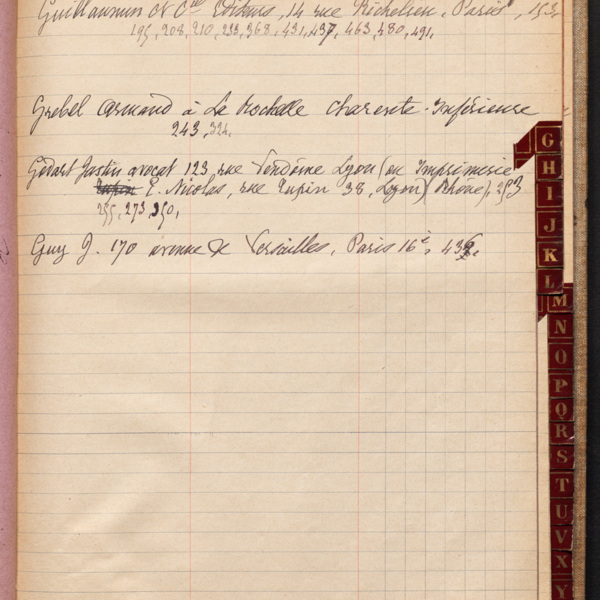 Guillaumin et Cie Editeurs, 14 rue Richelieu, Paris, 153,
195, 208, 210, 233, 368, 431, 437, 463, 480, 491,
Grebel Armand à La Rochelle Charente-Inférieure
243, 324,
Godart Justin avocat 123 rue Vendôme Lyon (ou Imprimerie
E. Nicolas, rue Tupin 38, Lyon) (Rhône), 253
255, 273, 350,
Guy J. 170 avenue de Versailles, Paris 16e,
G
H
I
J
K
L
M
N
O
P
Q
R
S
T
U
V
X
Y